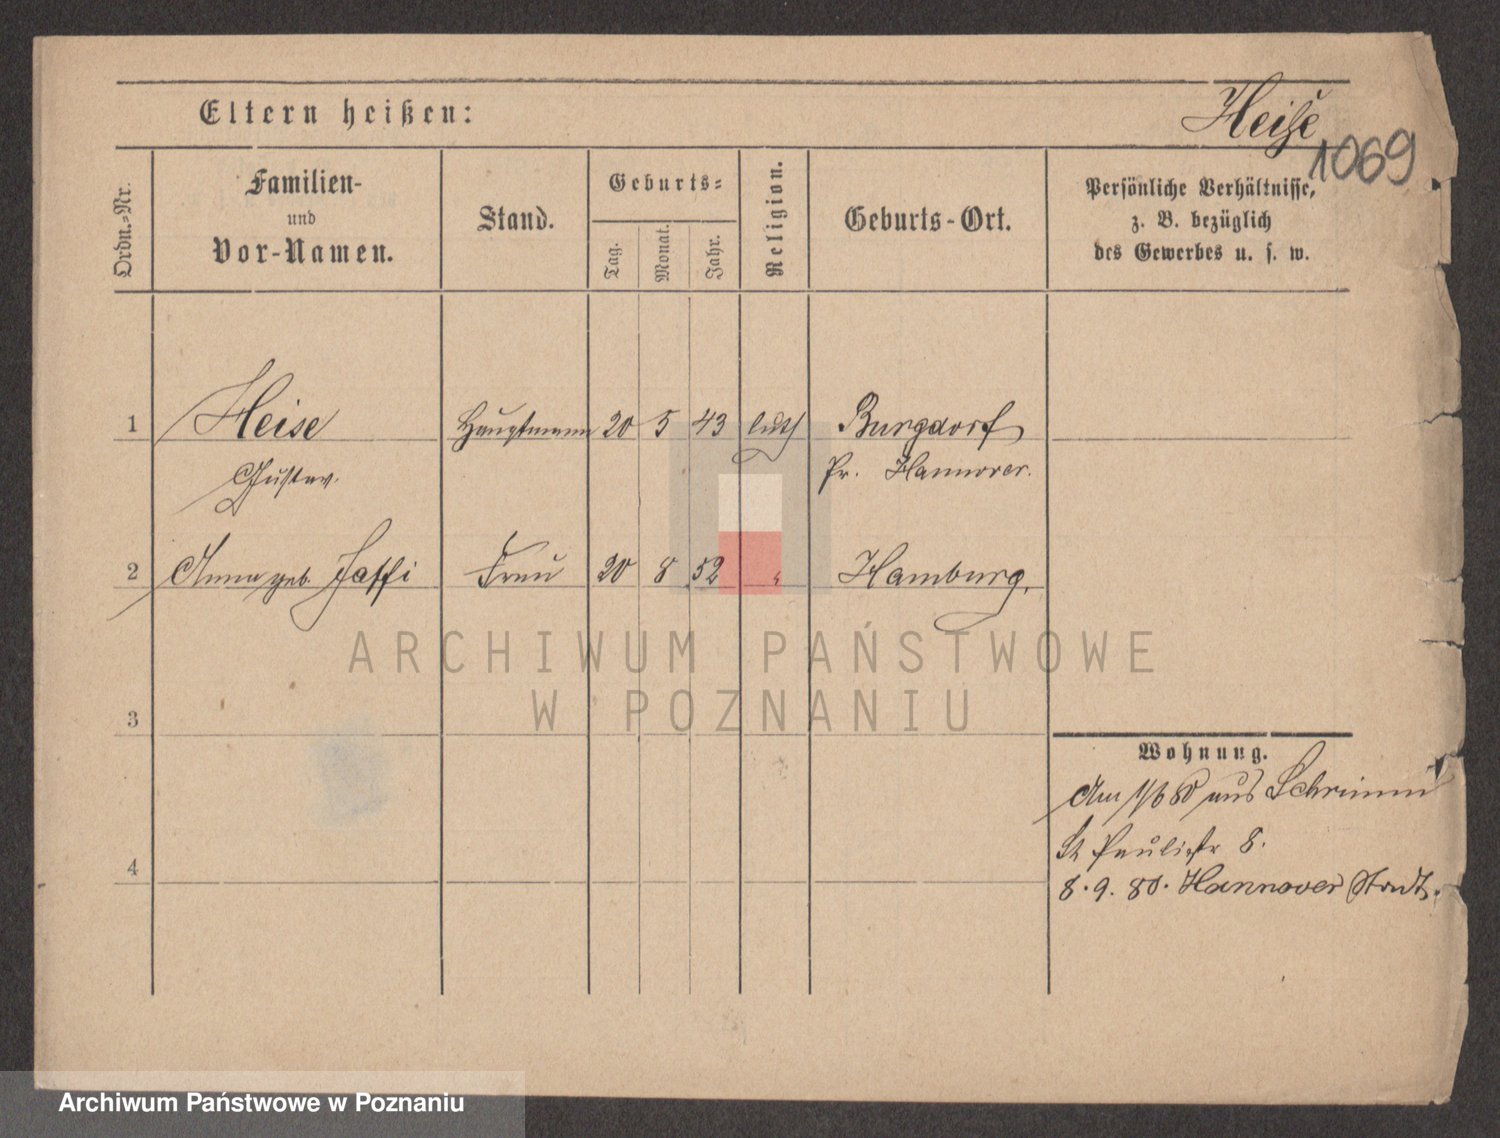 Eltern heißen:
Heise
1069
Ordn.-Nr.
Familien-
und
Vor-Namen.
Stand.
Geburts-
Tag.
Monat.
Jahr.
Religion.
Geburts-Ort.
Persönliche Verhältnisse,
z. B. bezüglich
des Gewerbes u. s. w.
1 Heise Hauptmann 20 5 43 luth Burgdorf
Gustav. Pr. Hannover.
2 Anna geb. Frau 20 8 52 " Hamburg.
ARCHIWUM PAŃSTWOWE
W POZNANIU
3
Wohnung.
Am 1/6 80 aus Schrimm
St Paulistr 8.
4
8.9.80. Hannover Stadt.
Archiwum Państwowe w Poznaniu